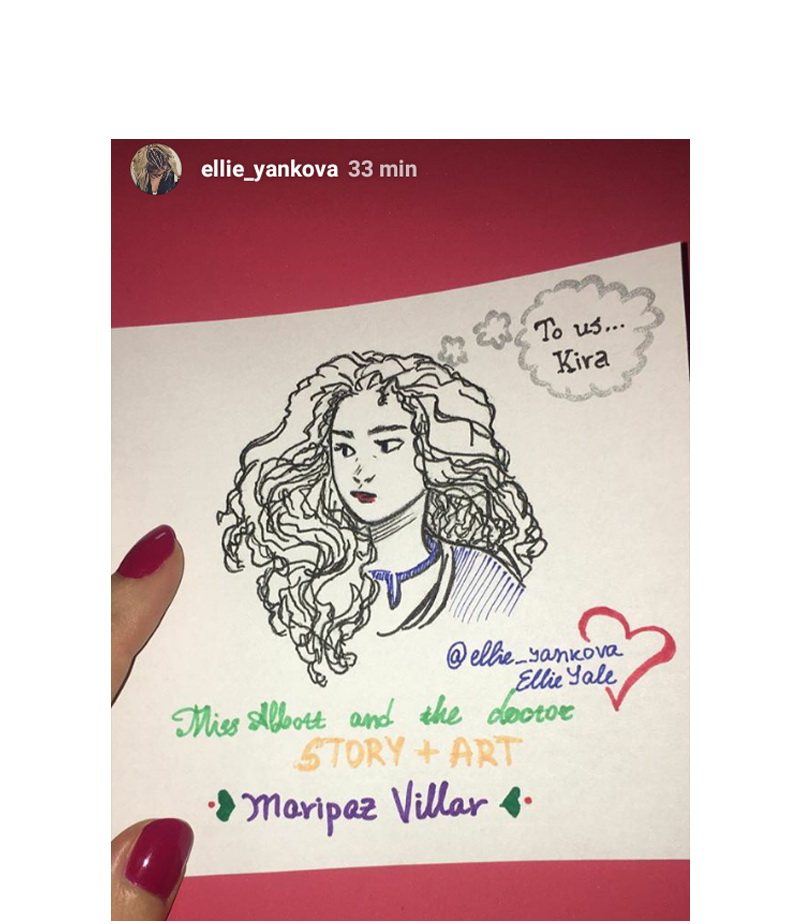 ellie_yankova 33 min
To us...
Kira
@ellie_yankova
Ellie Yale
Miss Abbott and the doctor
STORY + ART
Maripaz Villar